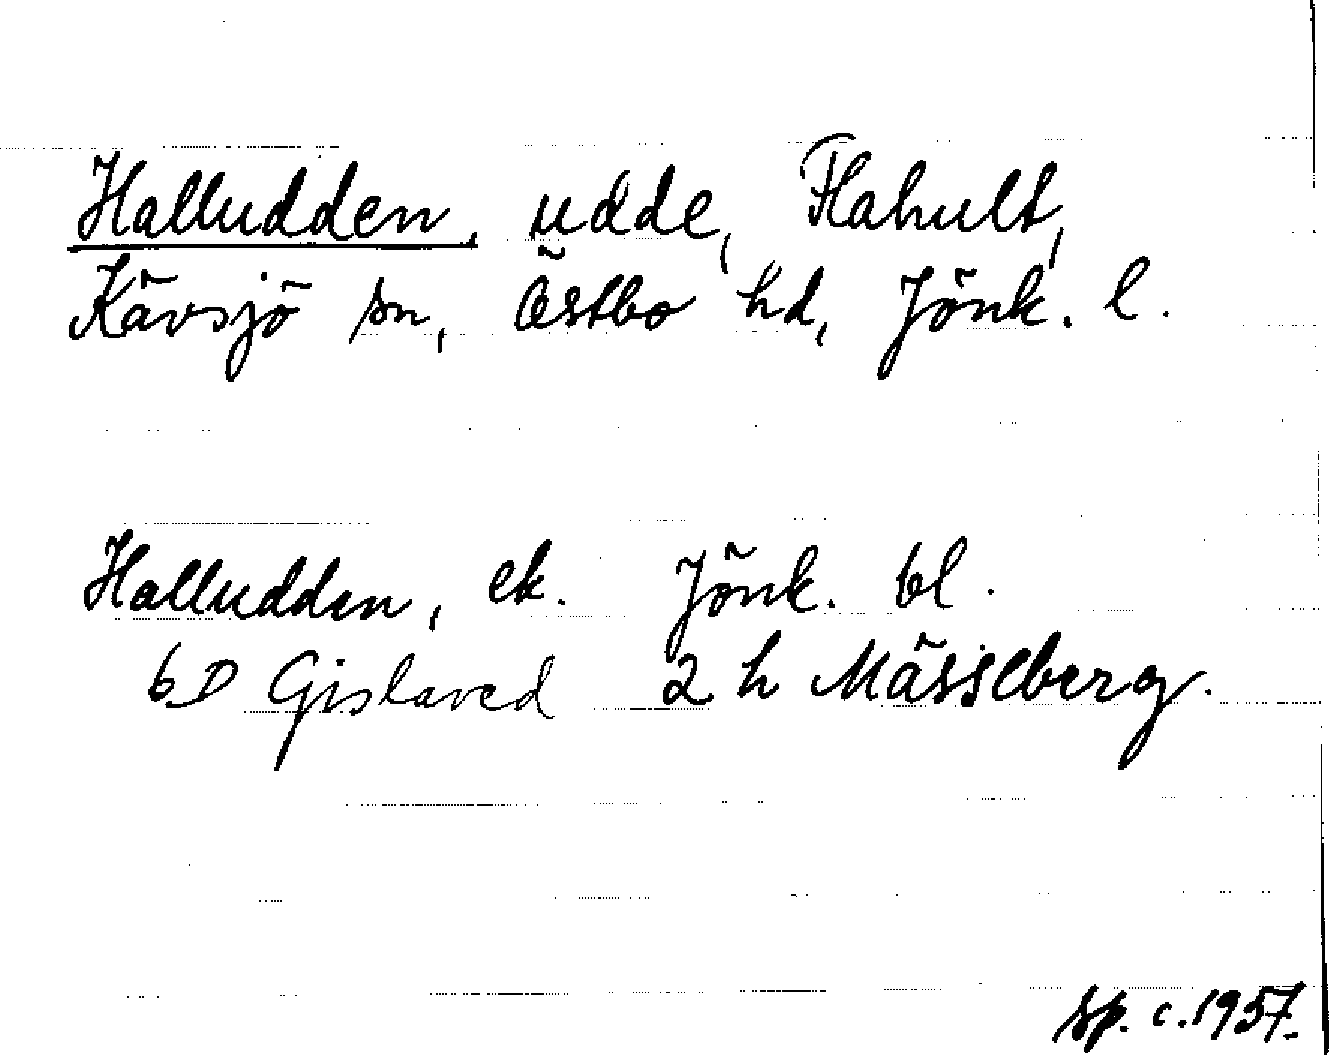 Halludden, udde, Flahult,
Kävsjö sn, Östbo hd, Jönk. l.
Halludden, ek. Jönk. bl.
6D Gislaved 2 h Mässeberg.
sp. c. 1957.